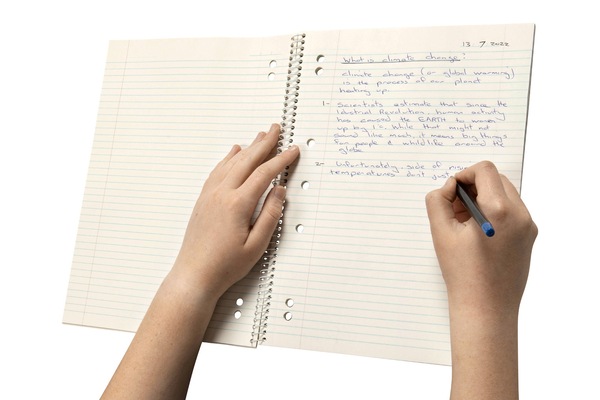 13. 7. 2022
What is climate change?
climate change (or global warming)
is the process of our planet
heating up.
1- Scientists estimate that since the
Industrial Revolution, human activity
has caused the EARTH to warm
up by 1.c. While that might not
sound like much, it means big things
for people & wildlife around the
globe.
2- Unfortunately, side of rising
temperatures dont just